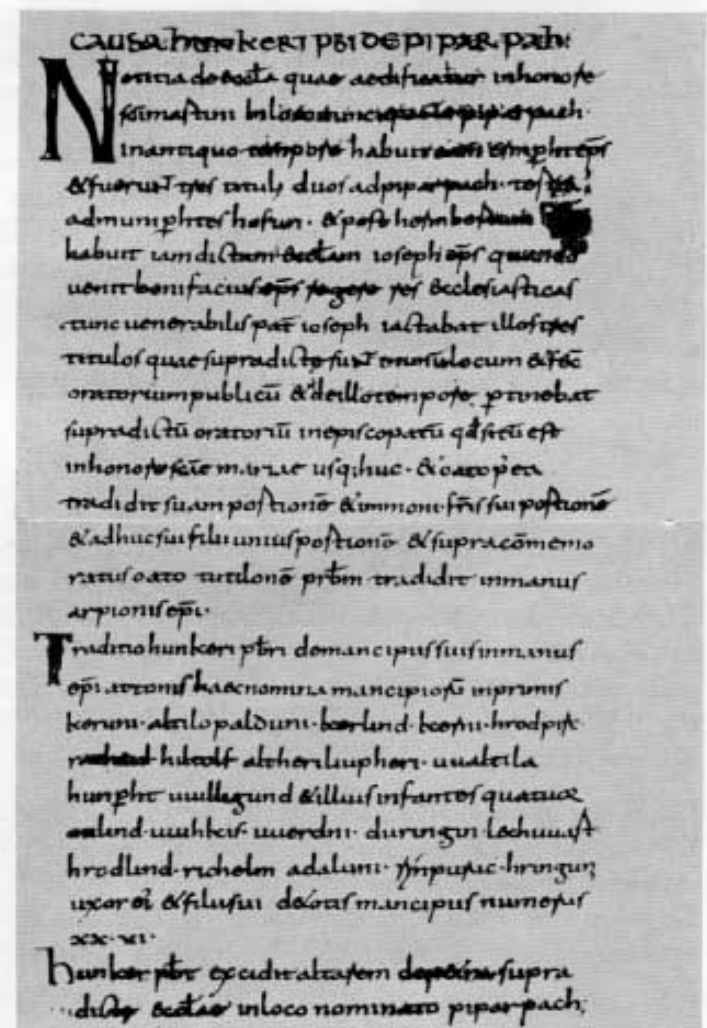 CAUSA hunKERI PBI DE PIPARPAh:
Notitia de eccla quae aedificatur in honore
sci martini In loco nuncupante piparpach.
In antiquo tempore habuit eam ermpht eps
& fuerunt tres tituli duos ad piparpach.
ad muniphtes hofun. & post
habuit iam dictam ecclam ioseph eps quando
uenit bonifacius eps regere res ecclesiasticas
tunc uenerabilis pat ioseph iactabat illos tres
titulos quae supradicte sunt in unum locum & fec
oratorium publicū & de illo tempore ptinebat
supradictū oratoriū in episcopatū qd scm est
in honore scae mariae usq; huc. & oato pea
tradidit suam portionē & immoni fris sui portionē
& adhuc sui filii unius portionē & supra cōmemo
ratus oato tutilonē prbm tradidit in manus
arpionis epi.
Traditio hunkeri pbri de mancipiis suis in manus
epi attonis haec nomina mancipiorū inprimis
keruni. altilo palduni. kerlind. hrodpirc
hiltolf altheri liupheri. uualtila
hunpht uuilligund & illius infantes quatuor
uuerdni. duringin lechuuast
hrodlind. richelm adaluni. hringun;
uxor ei & filii sui de totis mancipiis numerus
xx.vi.
hunker pbt excidit altarem de supra
dicte ecclae in loco nominato piparpach;